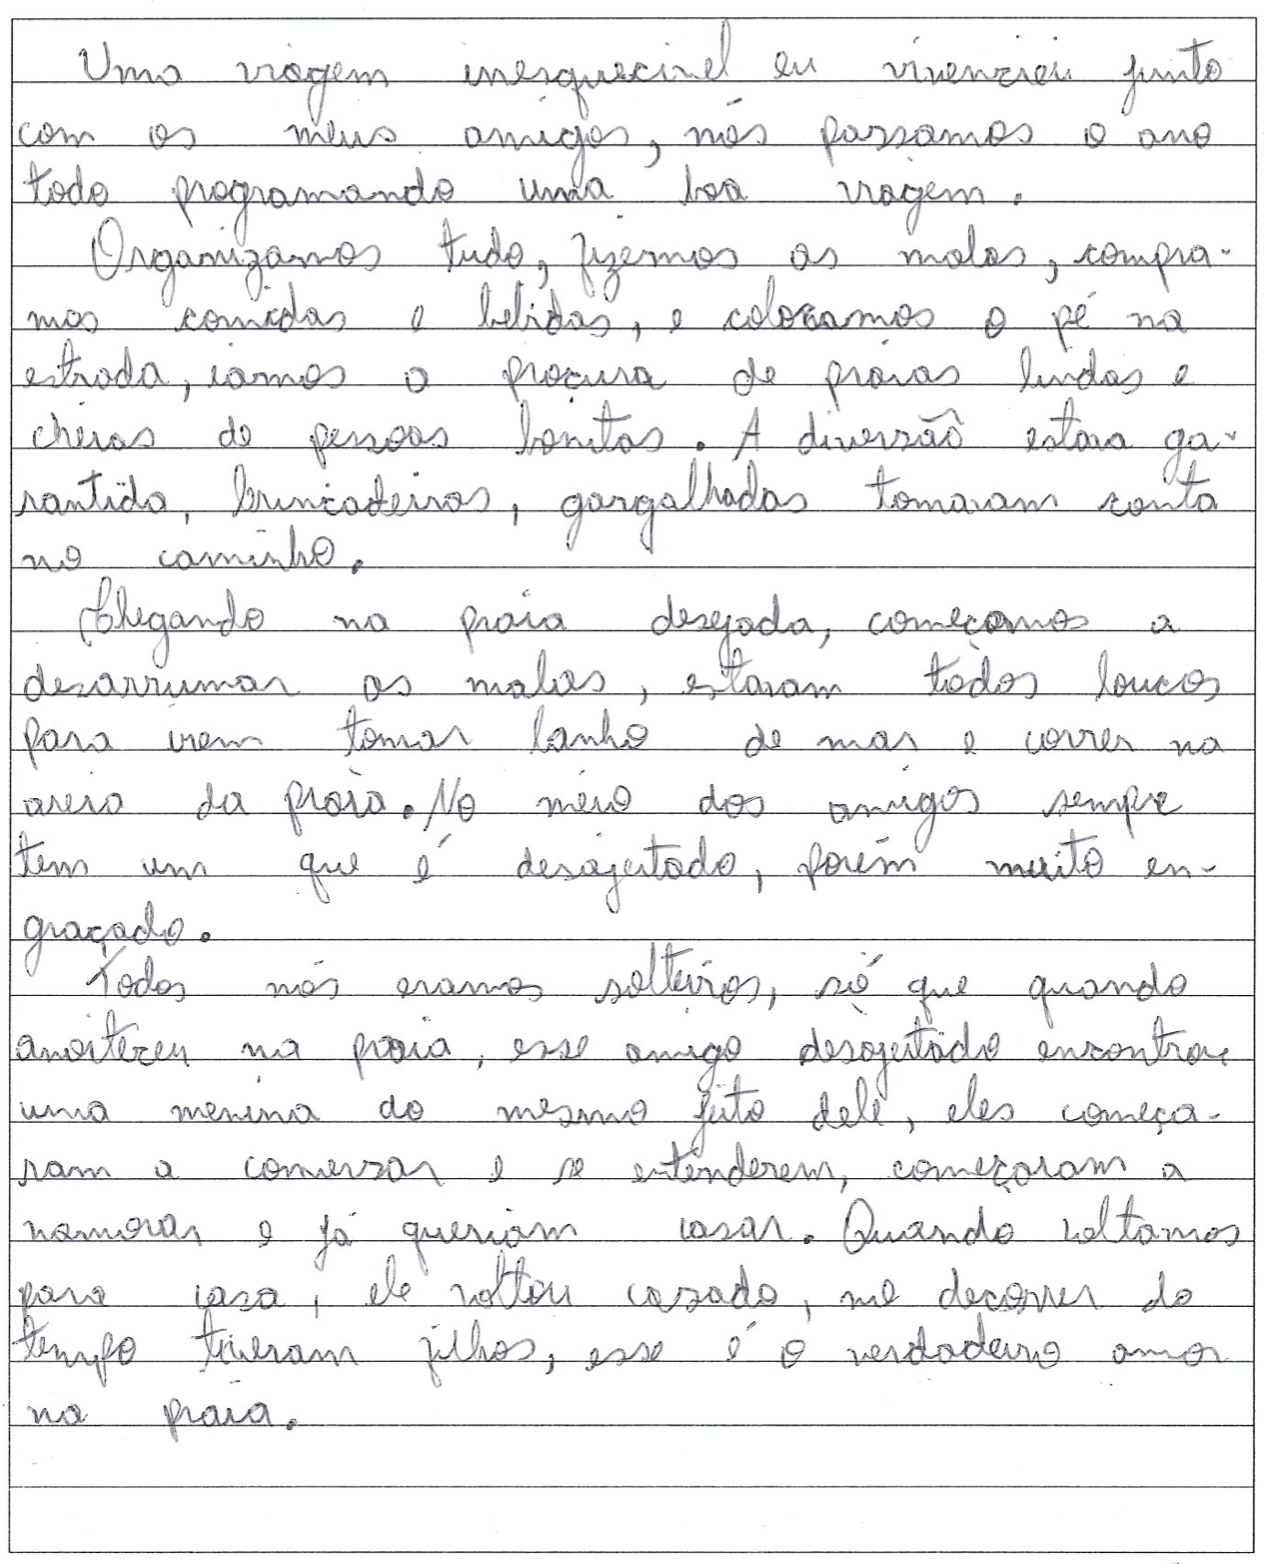 Uma viagem inesquecivel eu vivenciei junto
com os meus amigos, nós passamos o ano
todo programando uma boa viagem.
Organizamos tudo, fizemos as malas, compra-
mos comidas e bebidas, e colocamos o pé na
estrada, iamos a procura de praias lindas e
cheias de pessoas bonitas. A diversão estava ga-
rantida, brincadeiras, gargalhadas tomaram conta
no caminho.
Chegando na praia desejada, começamos a
desarrumar as malas, estavam todos loucos
para irem tomar banho de mar e correr na
areia da praia. No meio dos amigos sempre
tem um que é desajeitado, porém muito en-
graçado.
Todos nós eramos solteiros, só que quando
anoiteceu na praia, esse amigo desajeitado encontrou
uma menina do mesmo jeito dele, eles começa-
ram a conversar e se entenderem, começaram a
namorar e já queriam casar. Quando voltamos
para casa, ele voltou casado, no decorrer do
tempo tiveram filhos, esse é o verdadeiro amor
na praia.